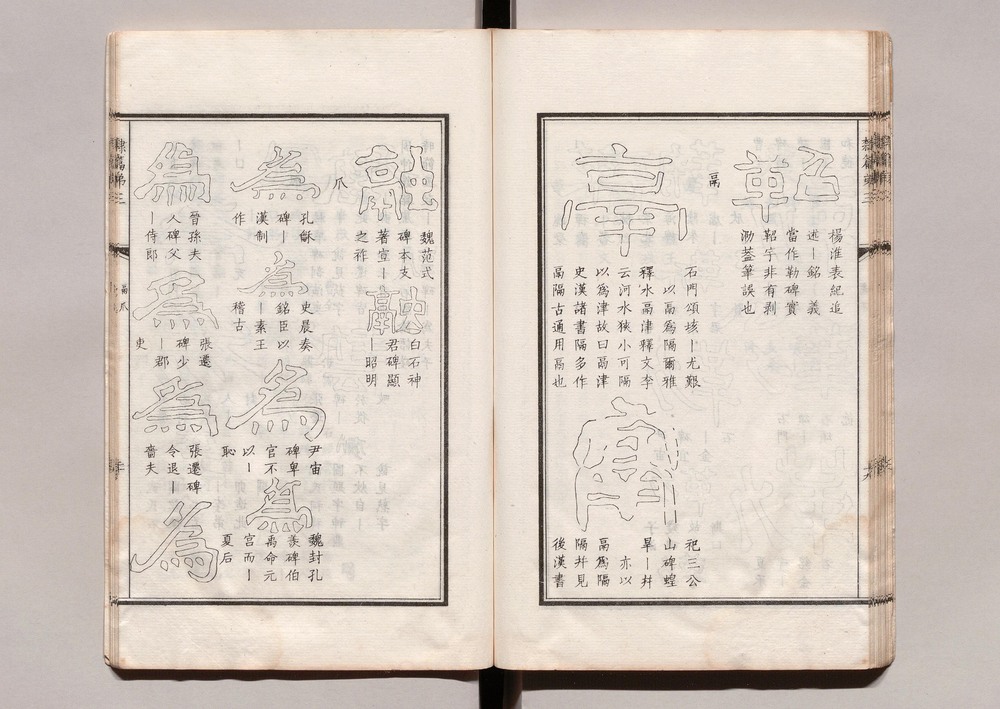 鞀
楊淮表紀追
述丨銘 義
當作勒碑實
鞀字非有剥
泐葢筆誤也
鬲
鬲
石門頌垓丨尤艱
以鬲爲隔爾雅
釋水鬲津釋文李
云河水狹小可隔
以爲津故曰鬲津
史漢諸書隔多作
鬲隔古通用鬲也
鬲
祀三公
山碑蝗
旱丨幷
亦以
鬲爲隔
隔幷見
後漢書
融
魏范式
碑本支
著宣丨
之祚
融
白石神
君碑顯
丨昭明
爪
爲
孔龢
碑丨
漢制
作
爲
史晨奏
銘臣以
丨素王
稽古
爲
尹宙
碑卑
官不
以丨
恥
爲
魏封孔
羨碑伯
禹命元
宮而丨
夏后
爲
晉孫夫
人碑父
丨侍郎
爲
張遷
碑少
丨郡
吏
爲
張遷碑
令退丨
嗇夫
爲
隸篇第三
鬲爪